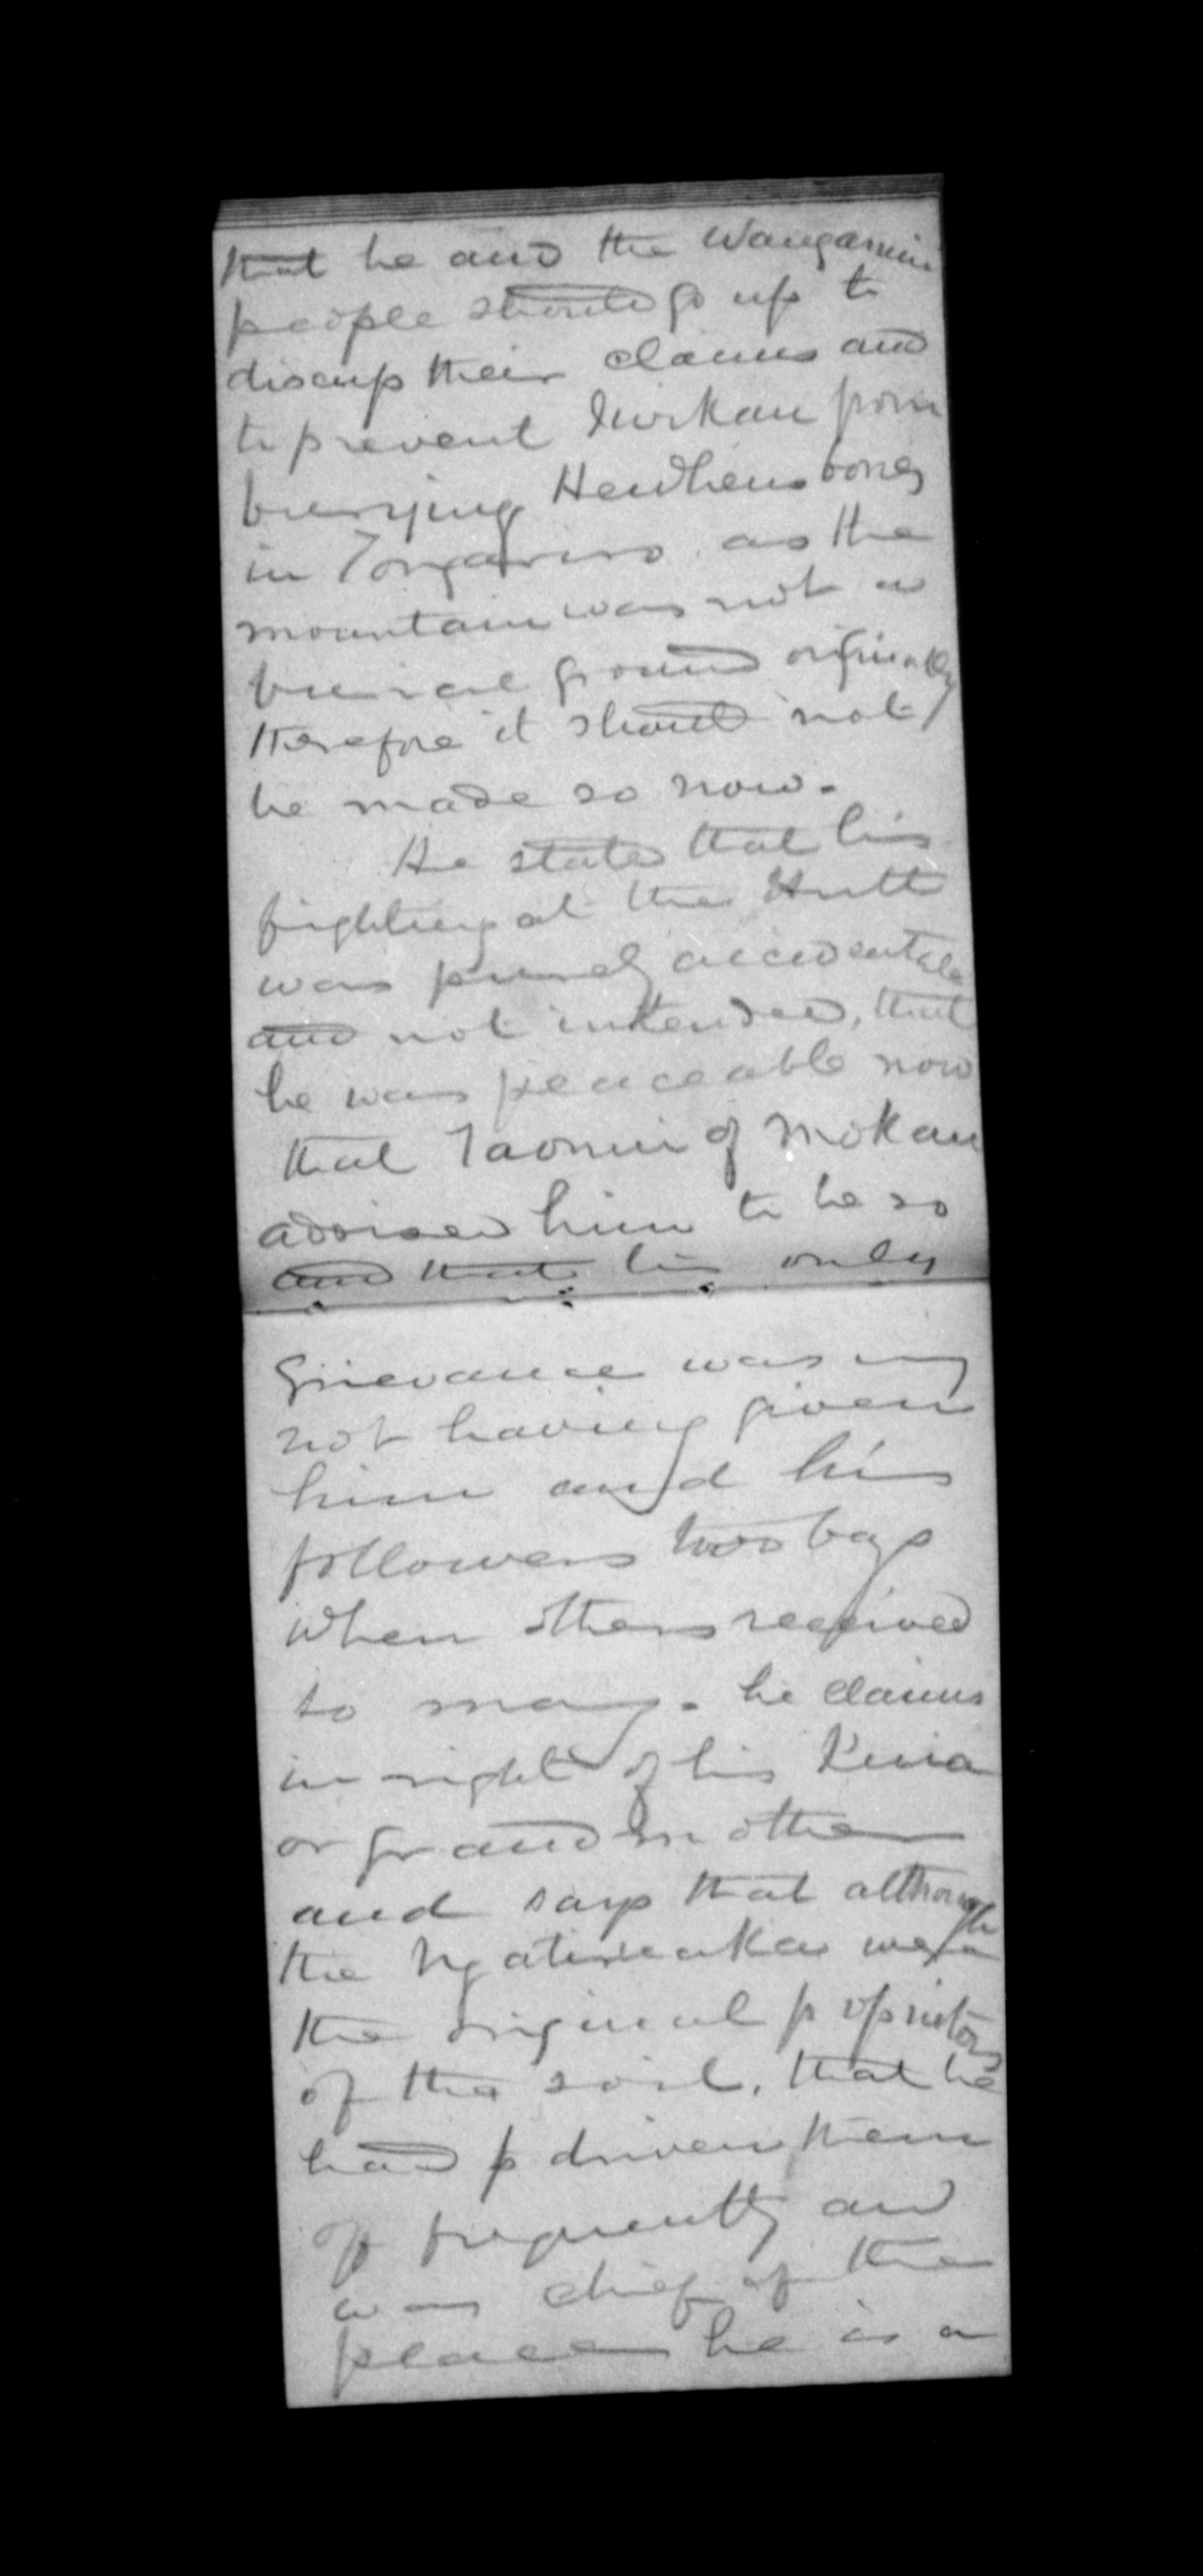 that he and the Wanganui
people should go up to
discuss their claims and
to prevent Iwikau from
burying Heuheus bones
in Tongariro as the
mountain was not a
burial ground originally
therefore it should not
be made so now.
He states that his
fighting at the Hutt
was purely accidental
and not intended, that
he was peaceable now
that Taonui of Mokau
advised him to be so
and that his only
Grievance was my
not having given
him and his
followers two bags
when others received
so many. he claims
in right of his Kuia
or grandmother
and says that although
the were
the original proprietors
of the soil, that he
had driven them
off frequently and
was chief of the
place he is a